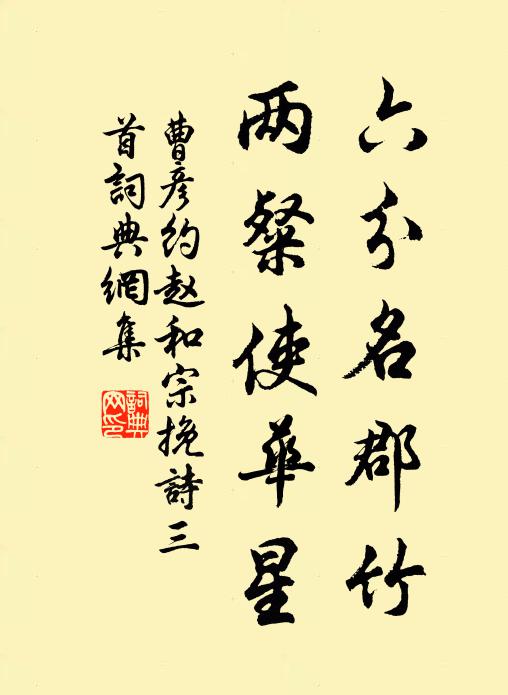 六分名郡竹
两粲使華星
曹彦約赵和宗挽詩三
首詞典網集
詞典
网印